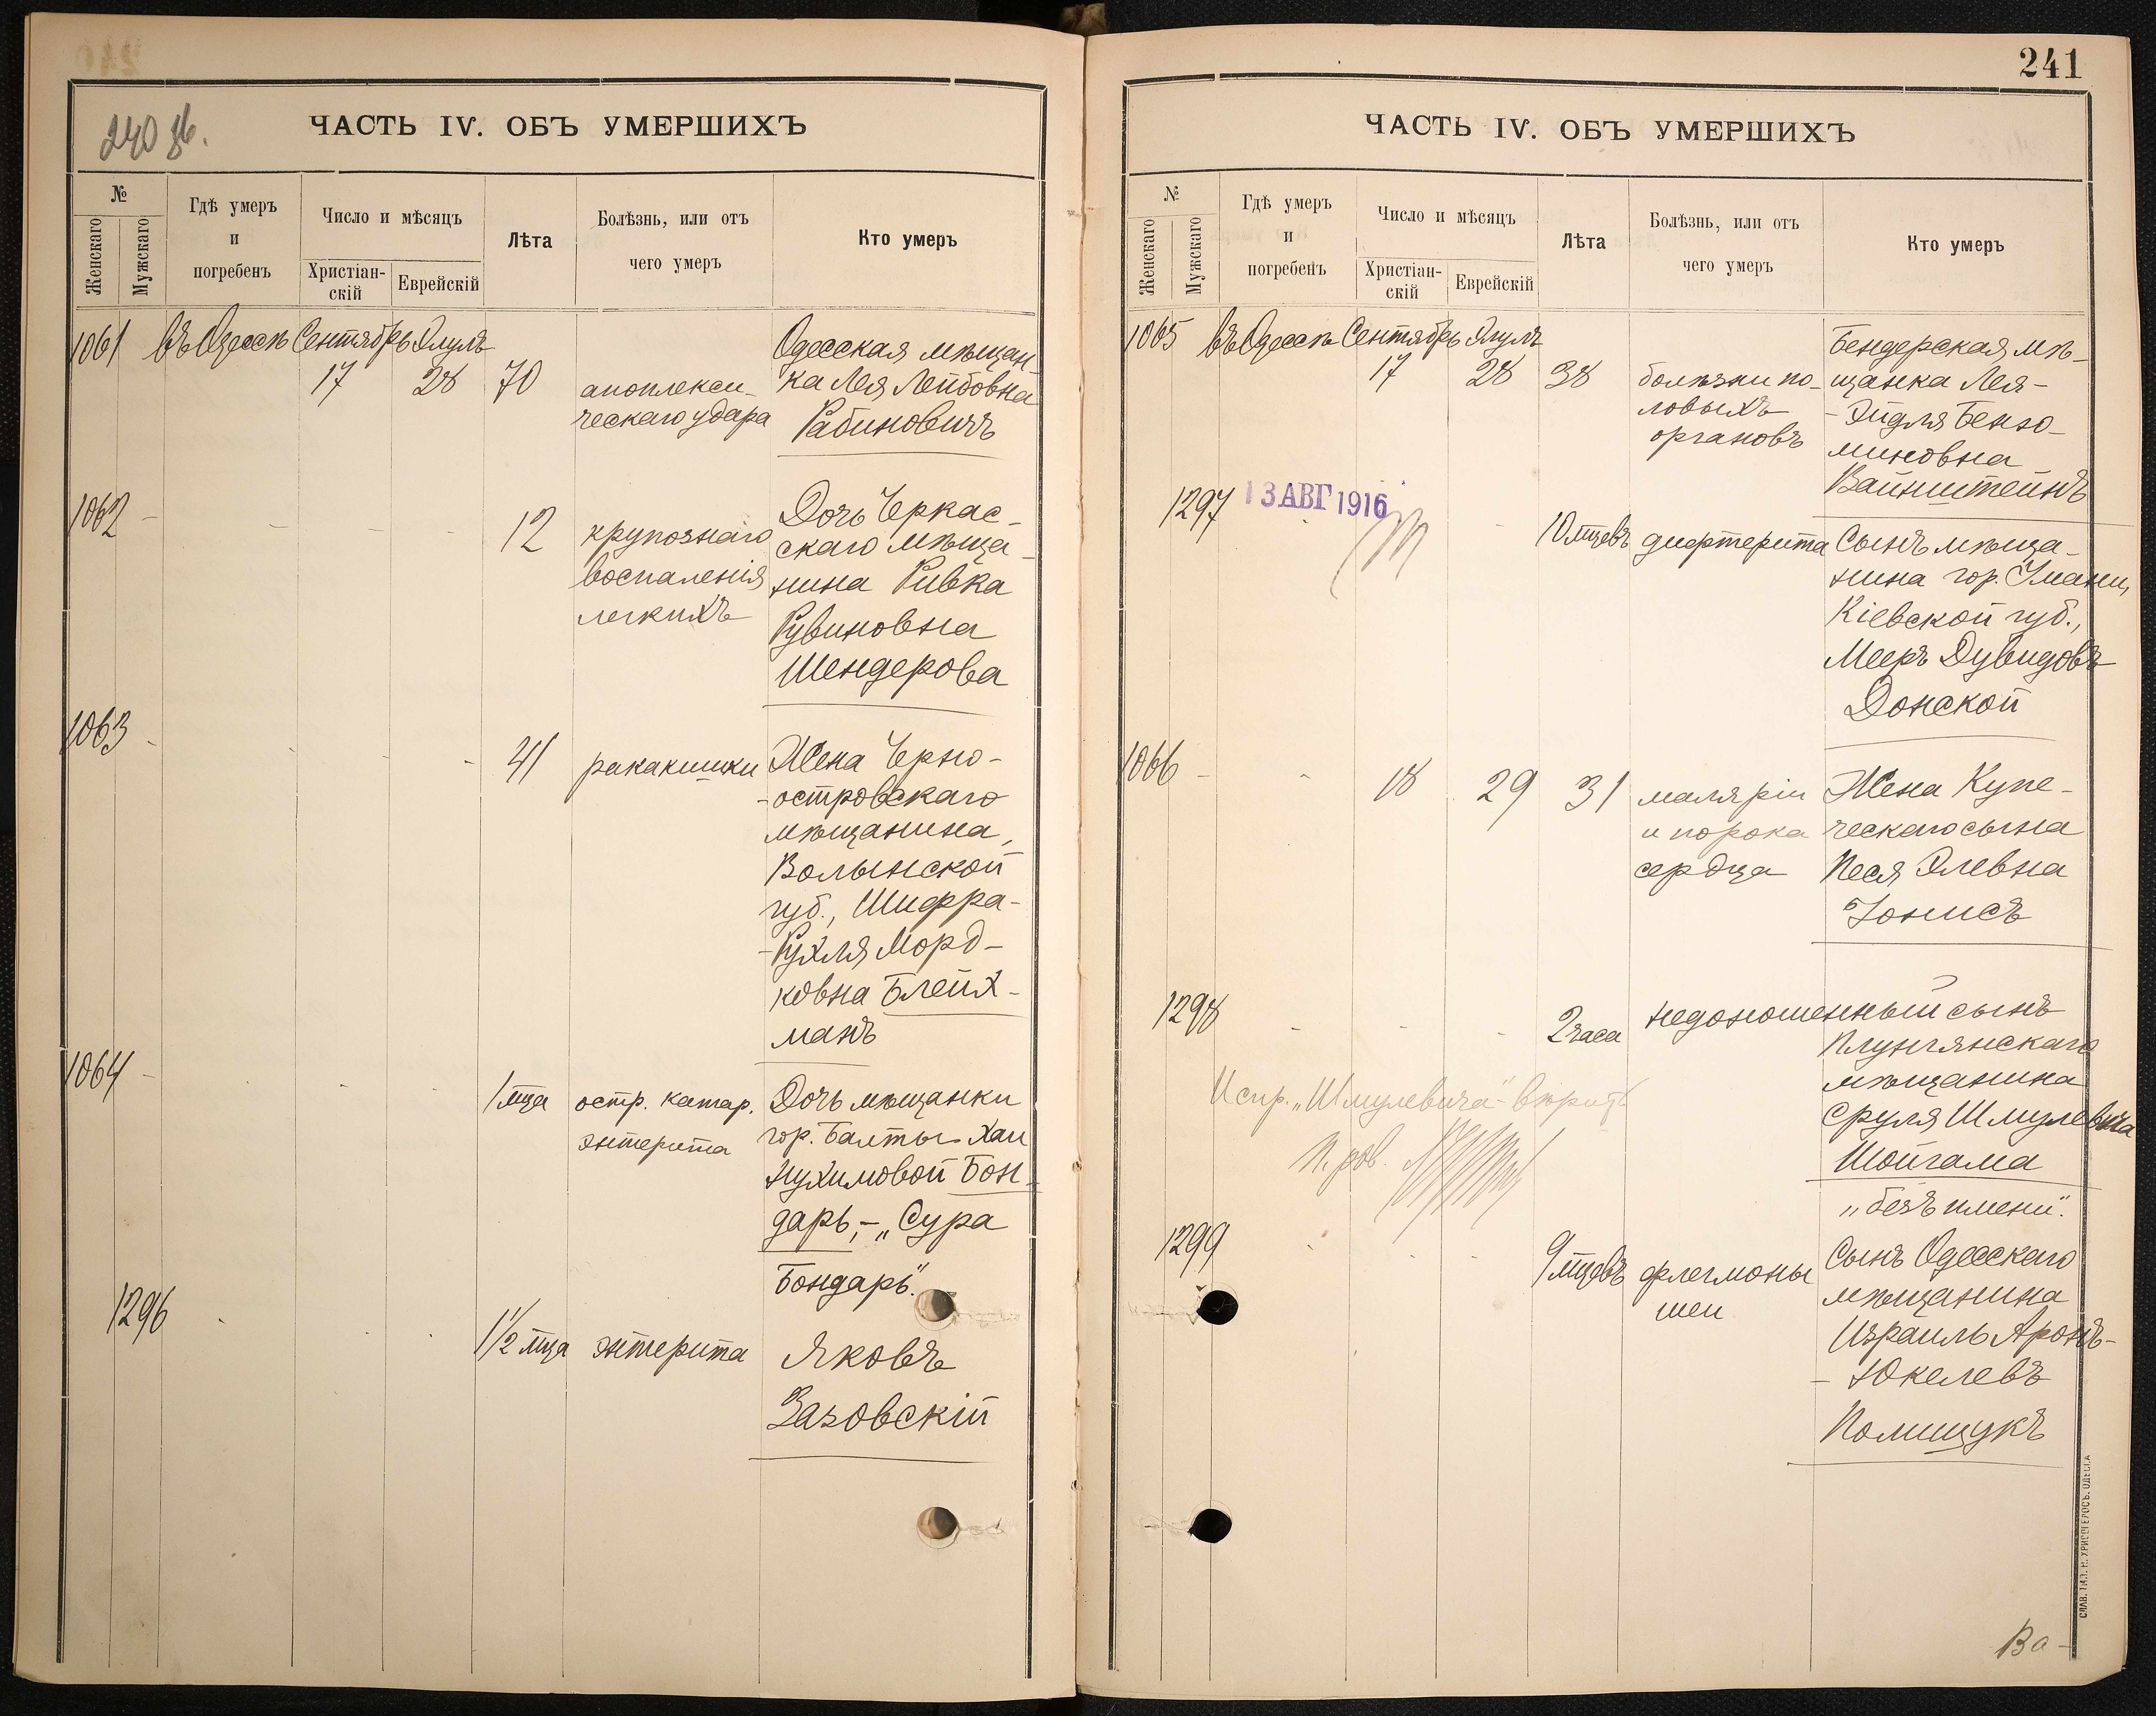 240 зв.
ЧАСТЬ IV. ОБЪ УМЕРШИХЪ
№
Женскаго
Мужскаго
Гдѣ умеръ
и
погребенъ
Число и мѣсяцъ
Христіан-
скій
Еврейскій
Лѣта
Болѣзнь, или отъ
чего умеръ
Кто умеръ
1061 въ Одессѣ Сентябрь Элулъ
17 28 70
апоплекси-
ческаго удара
Одесская мѣщан-
ка Лея Лейбовна
Рабиновичъ
1062 - - - - 12
крупознаго
воспаленія
легкихъ
Дочь Черкас-
скаго мѣща-
нина Ривка
Рувиновна
Шендерова
1063 - - - - 41 рака кишки
Жена Черно-
-островскаго
мѣщанина,
Волынской
губ., Шифра-
-Рухля Морд-
ковна Блейх-
манъ
1064 - - - - 1 мца
остр. катар.
энтерита
Дочь мѣщанки
гор. Балты Хаи
Нухимовой Бон-
дарь, - „Сура
Бондарь".
1296 - - - 1½ мца энтерита
Яковъ
Зазовскій
241
ЧАСТЬ IV. ОБЪ УМЕРШИХЪ
№
Женскаго
Мужскаго
Гдѣ умеръ
и
погребенъ
Число и мѣсяцъ
Христіан-
скій
Еврейскій
Лѣта
Болѣзнь, или отъ
чего умеръ
Кто умеръ
1065 въ Одессѣ Сентябрь Элулъ
17 28 38
болѣзни по-
ловыхъ
органовъ
Бендерская мѣ-
щанка Лея-
-Эйдля Беню-
миновна
Вайнштейнъ
1297
13 АВГ 1916
10 мцевъ дифтерита
Сынъ мѣща-
нина гор. Умани,
Кіевской губ.,
Мееръ Дувидовъ
Донской
1066 - - 18 29 31
маляріи
и порока
сердца
Жена Купе-
ческаго сына
Песя Элевна
Іонисъ
1298 - - - 2 часа
недоношенный сынъ
Плунгянскаго
мѣщанина
Сруля Шмулевича
Шойгама
„безъ имени".
Испр. „Шмулевича" вѣрить
П. рав.
1299 - - - 9 мцевъ
флегмоны
шеи
Сынъ Одесскаго
мѣщанина
Израиль Аронъ-
- Юкелевъ
Полищукъ
Ва-
СЛАВ. ТИП. Н. ХРИСОГЕЛОСЪ. ОДЕССА